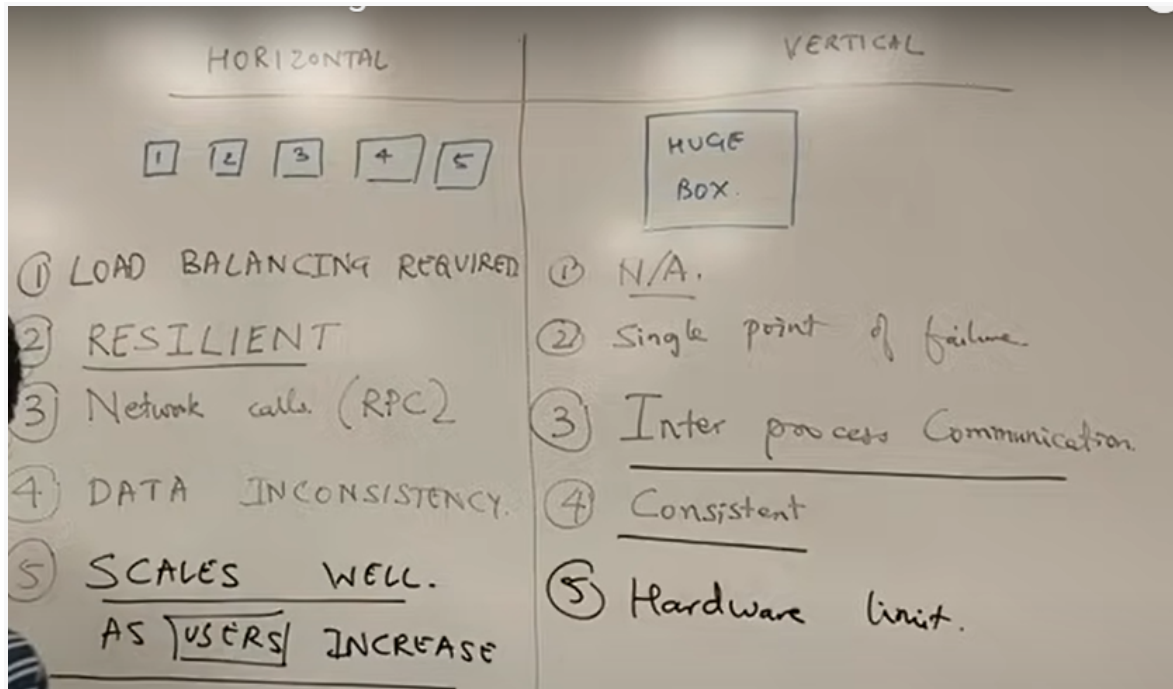 HORIZONTAL
1 2 3 4 5
① LOAD BALANCING REQUIRED
② RESILIENT
③ Network calls (RPC)
④ DATA INCONSISTENCY.
⑤ SCALES WELL.
AS USERS INCREASE
VERTICAL
HUGE
BOX.
① N/A.
② Single point of failure
③ Inter process Communication.
④ Consistent
⑤ Hardware limit.